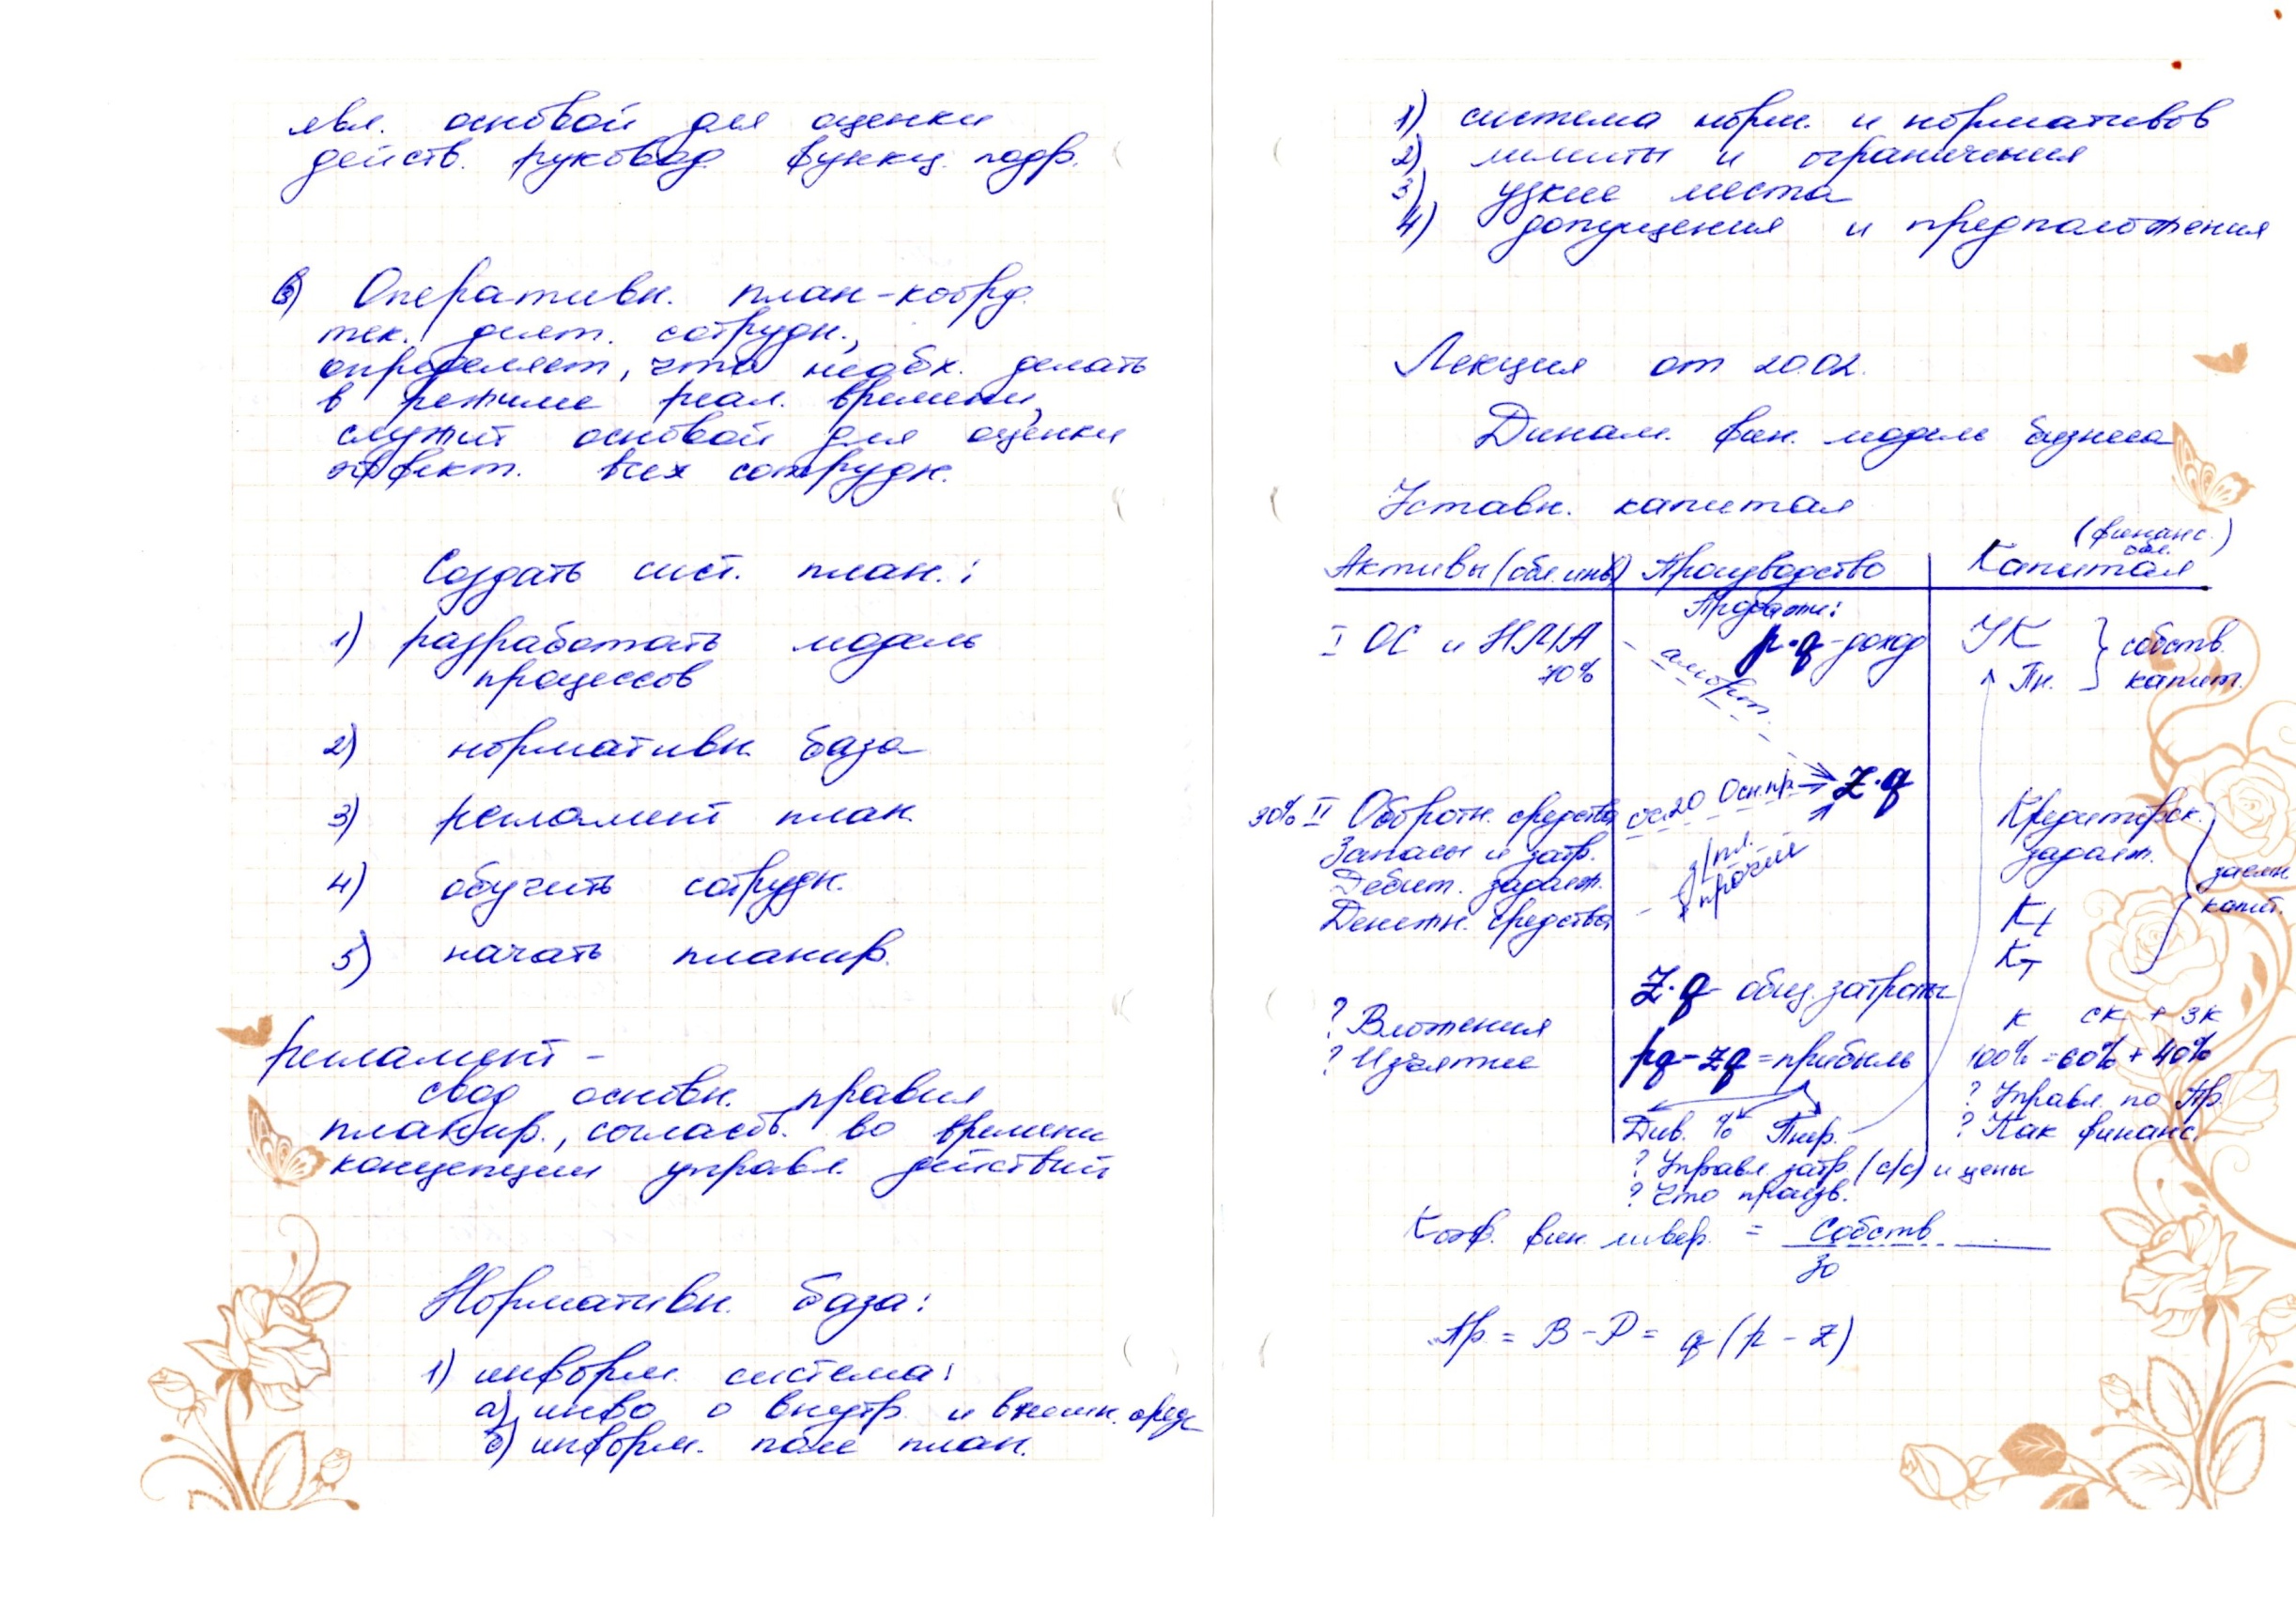 явл. основой для оценки
действ. руковод. функц. подр.
3) Оперативн. план - коорд.
тек. деят. сотрудн.,
определяет, что необх. делать
в режиме реал. времени,
служит основой для оценки
эффект. всех сотрудн.
Создать сист. план.:
1) разработать модель
процессов
2) нормативн. база
3) регламент план.
4) обучить сотрудн.
5) начать планир.
регламент -
свод основн. правил
планир., согласов. во времени
концепции управл. действий
Нормативн. база:
1) информ. система:
а) инфо о внутр. и внешн. среде
б) информ. поле план.
1) система норм. и нормативов
2) лимиты и ограничения
3) узкие места
4) допущения и предположения
Лекция от 20.02.
Динам. фин. модель бизнеса
Уставн. капитал
Активы (обл. инв.) Производство Капитал (финанс. обл.)
Продажи:
I ОС и НМА p·q - доход УК } собств.
70% аморт 
Пн. капит.
30% II Оборотн. средства сч 20 Осн. пр. Z·q Кредиторск.
Запасы и затр. з/пл. задолж. заемн.
Дебит. задолж. и прочие капит.
Денежн. средства Kt
KT
Z·q общ. затраты
? Вложения К СК + ЗК
? Изъятие pq - zq = прибыль 100% = 60% + 40%
? Управл. по Пр
Див. % Пнер. ? Как финанс.
? Управл. затр. (с/с) и цены
? Что произв.
Коэф. фин. ливер. = Собств.
ЗО
Пр. = В - Р = q (p - z)